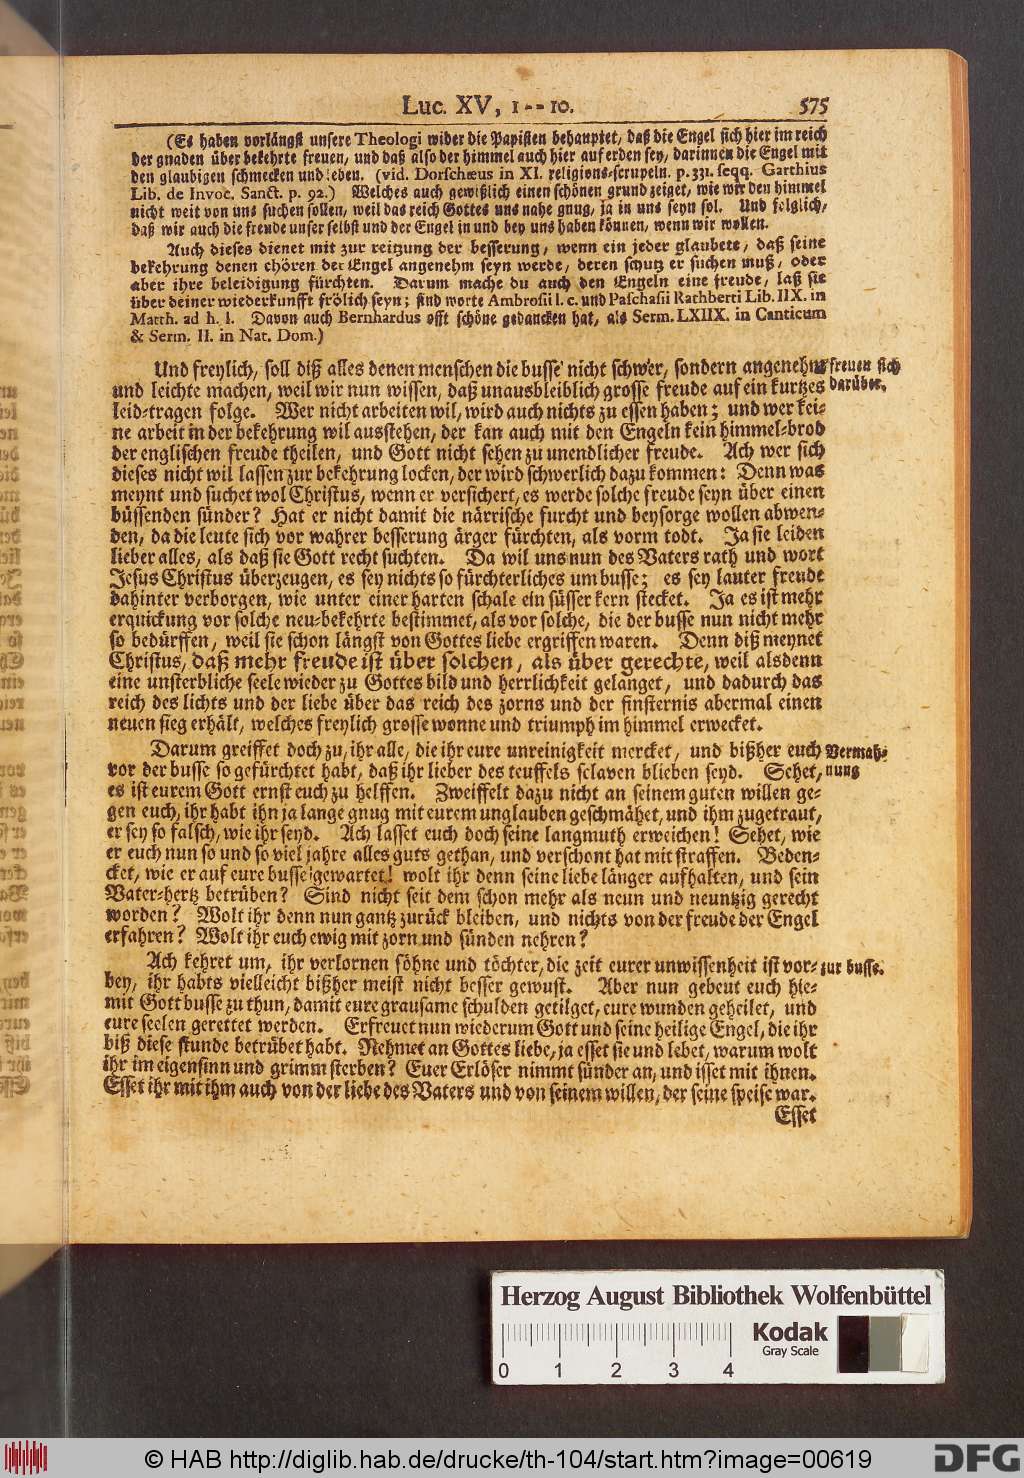 Luc. XV, 1--10. 575
(Es haben vorlängst unsere Theologi wider die Papisten behauptet, daß die Engel sich hier im reich
der gnaden über bekehrte freuen, und daß also der himmel auch hier auf erden sey, darinnen die Engel mit
den glaubigen schmecken und leben. (vid. Dorschæus in XI. religions-scrupeln. p. 331. seqq. Garthius
Lib. de Invoc. Sanct. p. 92.) Welches auch gewißlich einen schönen grund zeiget, wie wir den himmel
nicht weit von uns suchen sollen, weil das reich Gottes uns nahe gnug, ja in uns seyn sol. Und folglich,
daß wir auch die freude unser selbst und der Engel in und bey uns haben können, wenn wir wollen.
Auch dieses dienet mit zur reitzung der besserung, wenn ein jeder glaubete, daß seine
bekehrung denen chören der Engel angenehm seyn werde, deren schutz er suchen muß, oder
aber ihre beleidigung fürchten. Darum mache du auch den Engeln eine freude, laß sie
über deiner wiederkunfft frölich seyn; sind worte Ambrosii l. c. und Paschasii Rathberti Lib. IIX. in
Matth. ad h. l. Davon auch Bernhardus offt schöne gedancken hat, als Serm. LXIIX. in Canticum
& Serm. II. in Nat. Dom.)
Und freylich, soll diß alles denen menschen die busse nicht schwer, sondern angenehm freuen sich
und leichte machen, weil wir nun wissen, daß unausbleiblich grosse freude auf ein kurtzes darüber.
leid-tragen folge. Wer nicht arbeiten wil, wird auch nichts zu essen haben; und wer kei-
ne arbeit in der bekehrung wil ausstehen, der kan auch mit den Engeln kein himmel-brod
der englischen freude theilen, und Gott nicht sehen zu unendlicher freude. Ach wer sich
dieses nicht wil lassen zur bekehrung locken, der wird schwerlich dazu kommen: Denn was
meynt und suchet wol Christus, wenn er versichert, es werde solche freude seyn über einen
büssenden sünder? Hat er nicht damit die närrische furcht und beysorge wollen abwen-
den, da die leute sich vor wahrer besserung ärger fürchten, als vorm todt. Ja sie leiden
lieber alles, als daß sie Gott recht suchten. Da wil uns nun des Vaters rath und wort
Jesus Christus überzeugen, es sey nichts so fürchterliches um busse; es sey lauter freude
dahinter verborgen, wie unter einer harten schale ein süsser kern stecket. Ja es ist mehr
erquickung vor solche neu-bekehrte bestimmet, als vor solche, die der busse nun nicht mehr
so bedürffen, weil sie schon längst von Gottes liebe ergriffen waren. Denn diß meynet
Christus, daß mehr freude ist über solchen, als über gerechte, weil alsdenn
eine unsterbliche seele wieder zu Gottes bild und herrlichkeit gelanget, und dadurch das
reich des lichts und der liebe über das reich des zorns und der finsternis abermal einen
neuen sieg erhält, welches freylich grosse wonne und triumph im himmel erwecket.
Darum greiffet doch zu, ihr alle, die ihr eure unreinigkeit mercket, und bißher euch Vermah-
vor der busse so gefürchtet habt, daß ihr lieber des teuffels sclaven blieben seyd. Sehet, nung
es ist eurem Gott ernst euch zu helffen. Zweiffelt dazu nicht an seinem guten willen ge-
gen euch, ihr habt ihn ja lange gnug mit eurem unglauben geschmähet, und ihm zugetraut,
er sey so falsch, wie ihr seyd. Ach lasset euch doch seine langmuth erweichen! Sehet, wie
er euch nun so und so viel jahre alles guts gethan, und verschont hat mit straffen. Beden-
cket, wie er auf eure busse gewartet! wolt ihr denn seine liebe länger aufhalten, und sein
Vater-hertz betrüben? Sind nicht seit dem schon mehr als neun und neuntzig gerecht
worden? Wolt ihr denn nun gantz zurück bleiben, und nichts von der freude der Engel
erfahren? Wolt ihr euch ewig mit zorn und sünden nehren?
Ach kehret um, ihr verlornen söhne und töchter, die zeit eurer unwissenheit ist vor- zur busse.
bey, ihr habts vielleicht bißher meist nicht besser gewust. Aber nun gebeut euch hie-
mit Gott busse zu thun, damit eure grausame schulden getilget, eure wunden geheilet, und
eure seelen gerettet werden. Erfreuet nun wiederum Gott und seine heilige Engel, die ihr
biß diese stunde betrübet habt. Nehmet an Gottes liebe, ja esset sie und lebet, warum wolt
ihr im eigensinn und grimm sterben? Euer Erlöser nimmt sünder an, und isset mit ihnen.
Esset ihr mit ihm auch von der liebe des Vaters und von seinem willen, der seine speise war.
Esset
Herzog August Bibliothek Wolfenbüttel
Kodak
Gray Scale
0 1 2 3 4
© HAB http://diglib.hab.de/drucke/th-104/start.htm?image=00619
DFG